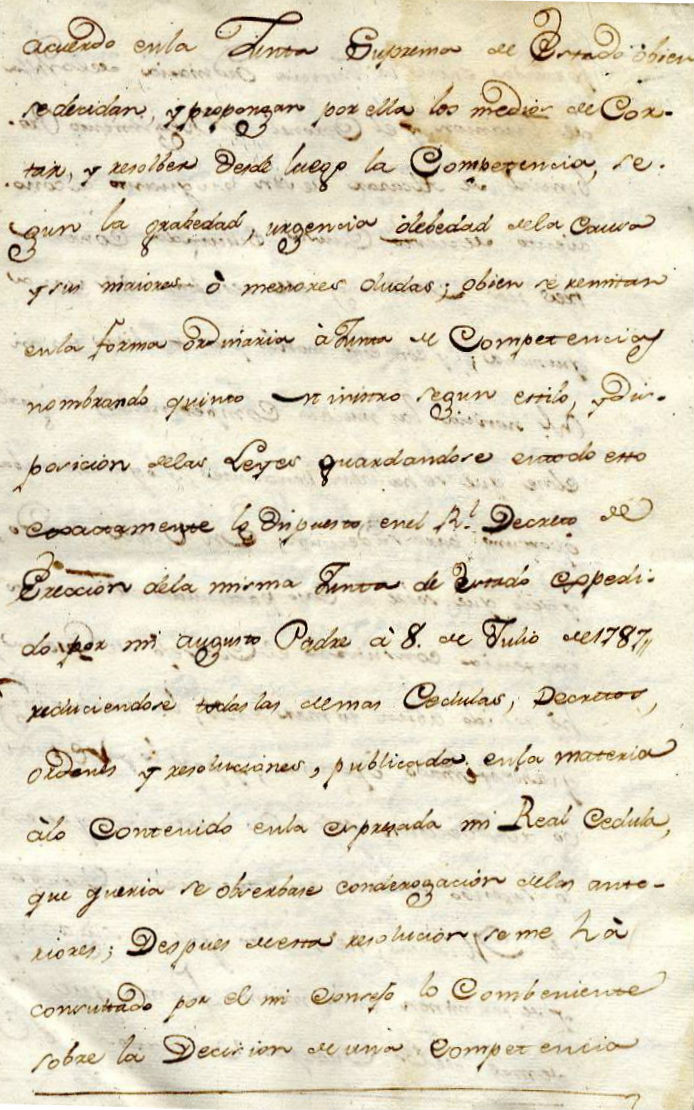 acuerdo enla Junta Suprema de Estado òbien
sedecidan, y propongan por ella los medios de Cor-
tar, y resolber desde luego la Competencia, se-
gun la grabedad, urgencia òlebedad dela Causa
y sus maiores ò menores dudas; òbien se remitan
enla forma ordinaria à Junta de Competencias
nombrando quinto Ministro segun estilo, y dis-
posicion delas Leyes guardandose entodo esto
exactamente lo dispuesto enel Rl. Decreto de
Ereccion dela misma Junta de Estado expedi-
do por mi augusto Padre à 8. de Julio de 1787,,
reduciendose todas las demas Cedulas, Decretos,
ordenes y resoluciones, publicadas enla materia
àlo Contenido enla expresada mi Real Cedula,
que queria se obserbase conderogación delas ante-
riores; Despues de esta resolucion seme hà
consultado por el mi Consejo lo Combeniente
sobre la Decision de una Competencia